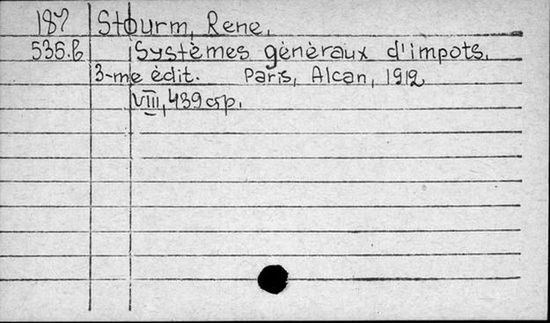 187 Stourm, Rene.
535.б Systèmes gènèraux d'impots.
3-me èdit. Paris, Alcan, 1912
VIII, 439 стр.